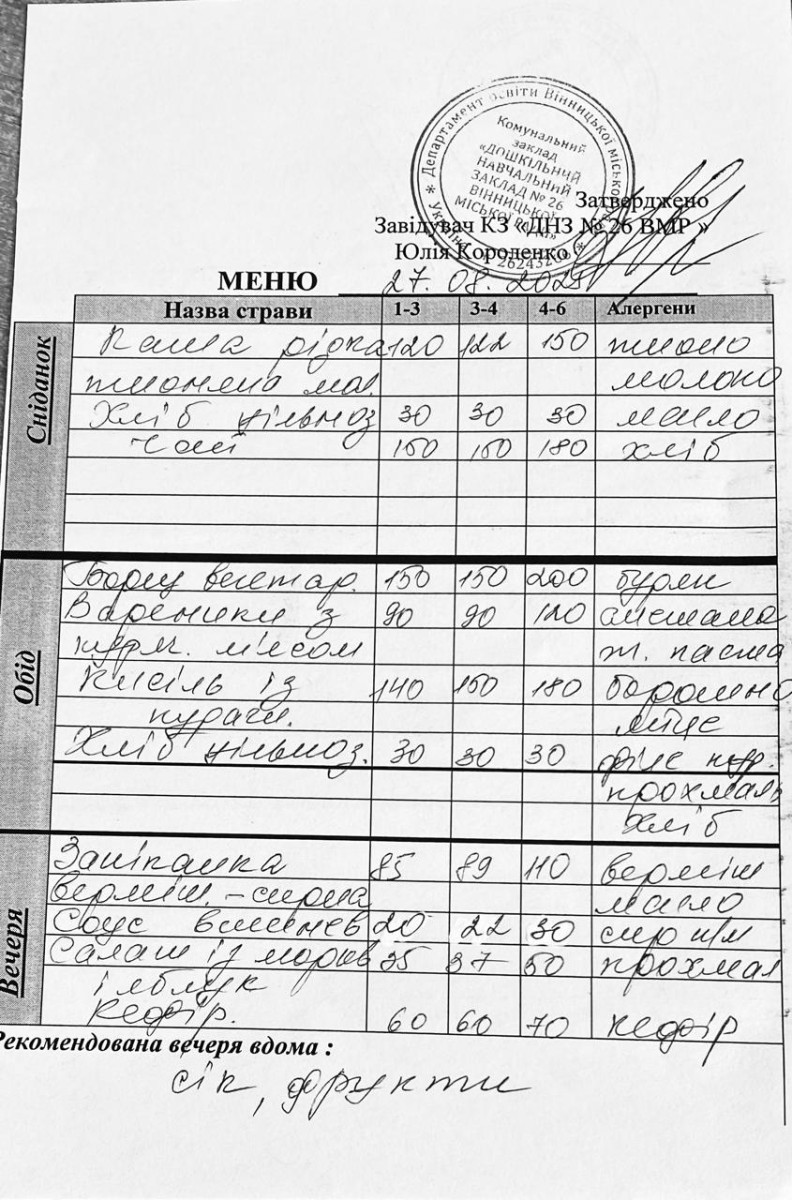 Департамент освіти Вінницької міської
Комунальний
заклад
«ДОШКІЛЬНИЙ
НАВЧАЛЬНИЙ
ЗАКЛАД № 26
ВІННИЦЬКОЇ
МІСЬКОЇ РАДИ»
Затверджено
Завідувач КЗ «ДНЗ № 26 ВМР »
Юлія Короденко
МЕНЮ 27. 08. 2025
Назва страви 1-3 3-4 4-6 Алергени
Сніданок
Каша рідка 120 122 150 пшоно
пшоняна мол. молоко
Хліб цільноз 30 30 30 масло
Чай 150 150 180 хліб
Обід
Борщ вегетар. 150 150 200 буряк
Вареники з 90 90 120 сметана
курм. м'ясом т. паста
Кисіль із 140 150 180 борошно
кураги. яйце
Хліб цільноз. 30 30 30 філе кур.
прохмаль
Хліб
Вечеря
Запіканка 85 89 110 верміш
верміш.-сирна масло
Соус вишнев 20 22 30 сир н/м
Салат із моркв 35 37 50 прохмал
і яблук
Кефір. 60 60 70 кефір
Рекомендована вечеря вдома :
сік, фрукти